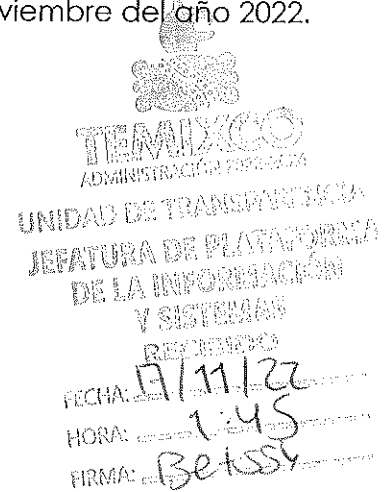 viembre del año 2022.
TEMIXCO
ADMINISTRACIÓN 2022-2024
UNIDAD DE TRANSPARENCIA
JEFATURA DE PLATAFORMA
DE LA INFORMACIÓN
Y SISTEMAS
RECIBIDO
FECHA: 17/11/22
HORA: 1:45
FIRMA: Betssy